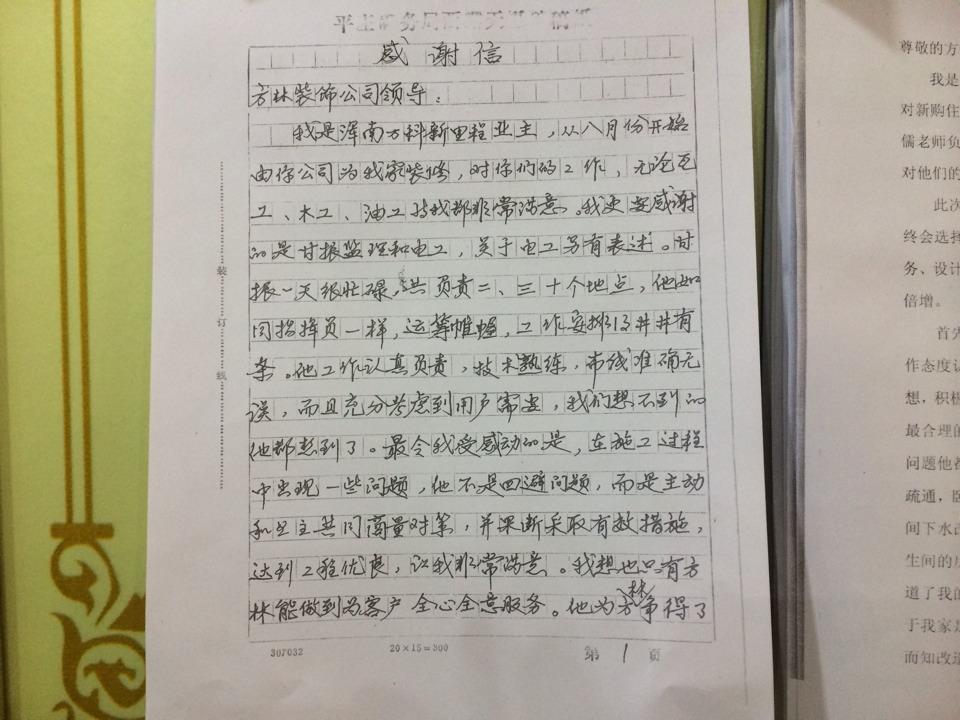 感谢信
方林装饰公司领导：
我是浑南万科新里程业主，从八月份开始
由你公司为我家装修，对你们的工作，无论瓦
工、木工、油工等我都非常满意。我更要感谢
的是甘振监理和电工，关于电工另有表述。甘
振一天很忙碌，共负责二、三十个地点，他如
同指挥员一样，运筹帷幄，工作安排得井井有
条。他工作认真负责，技术熟练，布线准确无
误，而且充分考虑到用户需要，我们想不到的
他都想到了。最令我受感动的是，在施工过程
中出现一些问题，他不是回避问题，而是主动
和业主共同商量对策，并果断采取有效措施，
达到工程优良，让我非常满意。我想也只有方
林能做到为客户全心全意服务。他为方林争得了
装
订
线
307032
20×15=300
第 1 页
尊敬的方
我是
对新购住
儒老师负
对他们的
此次
终会选择
务、设计
倍增。
首先
作态度认
想，积极
最合理的
问题他都
疏通，
间下水
生间的
道了我的
于我家是
而知改造